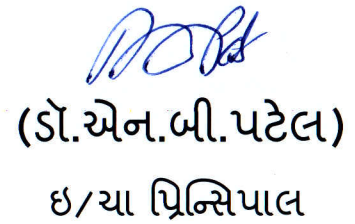 (ડૉ.એન.બી.પટેલ)
ઇ/ચા પ્રિન્સિપાલ